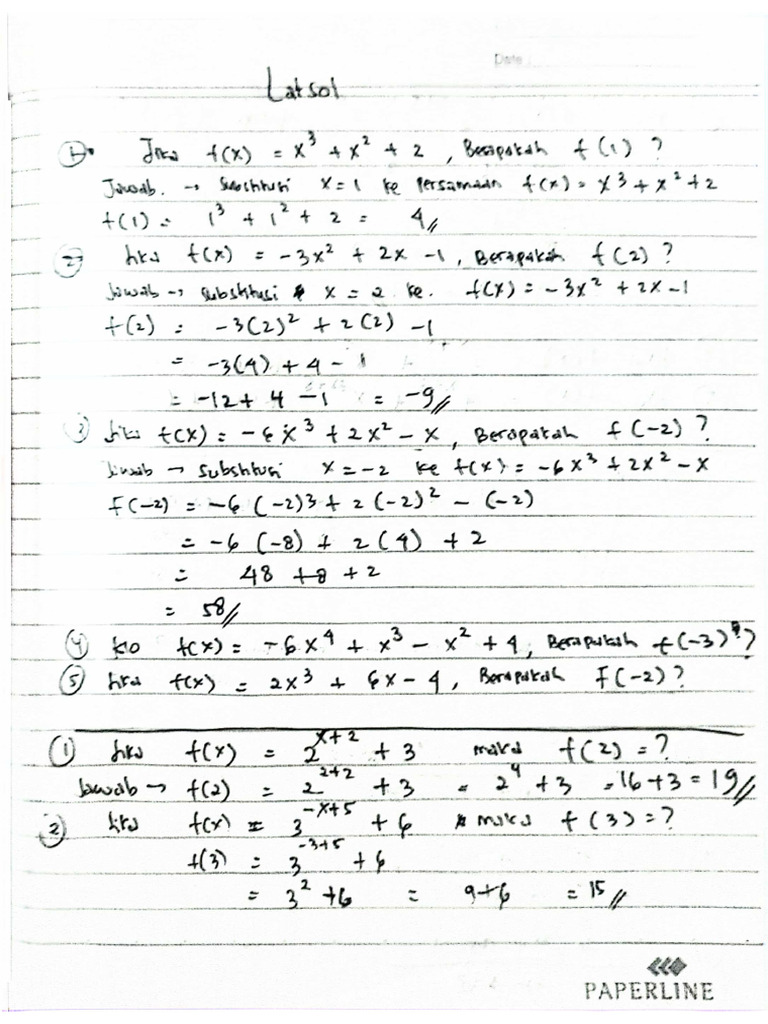 Date :
Latsol
1. Jika f(x) = x³ + x² + 2, Berapakah f(1) ?
Jawab. → Substitusi x=1 ke Persamaan f(x) = x³ + x² + 2
f(1) = 1³ + 1² + 2 = 4//
2. Jika f(x) = -3x² + 2x -1, Berapakah f(2) ?
Jawab → substitusi x = 2 ke. f(x) = -3x² + 2x -1
f(2) = -3(2)² + 2(2) -1
= -3(4) + 4 - 1
= -12 + 4 -1 = -9//
3 Jika f(x) = -6x³ + 2x² - x, Berapakah f(-2) ?
Jawab → substitusi x = -2 ke f(x) = -6x³ + 2x² - x
F(-2) = -6 (-2)3 + 2 (-2)² - (-2)
= -6 (-8) + 2 (4) + 2
= 48 +8 + 2
= 58//
4 f(x) = -6x⁴ + x³ - x² + 4, Berapakah f(-3) ?
5 Jika f(x) = 2x³ + 6x - 4, Berapakah F(-2) ?
1 Jika f(x) = 2^(x+2) + 3 maka f(2) = ?
Jawab → f(2) = 2^(2+2) + 3 = 2⁴ + 3 = 16 + 3 = 19//
2 Jika f(x) = 3^(-x+5) + 6 maka f(3) = ?
f(3) = 3^(-3+5) + 6
= 3² + 6 = 9+6 = 15//
PAPERLINE